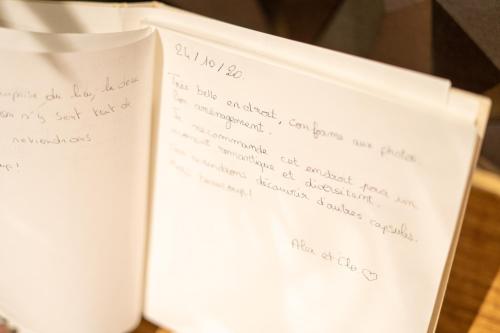 surprise du lieu, la deco
n'y sont tout de
reviendrons
24/10/20
Très belle endroit, conforme aux photos
bon aménagement.
Je recommande cet endroit pour un
moment romantique et divertissant.
reviendrons découvrir d'autres capsules.
beaucoup!
Alex et Clo ♡